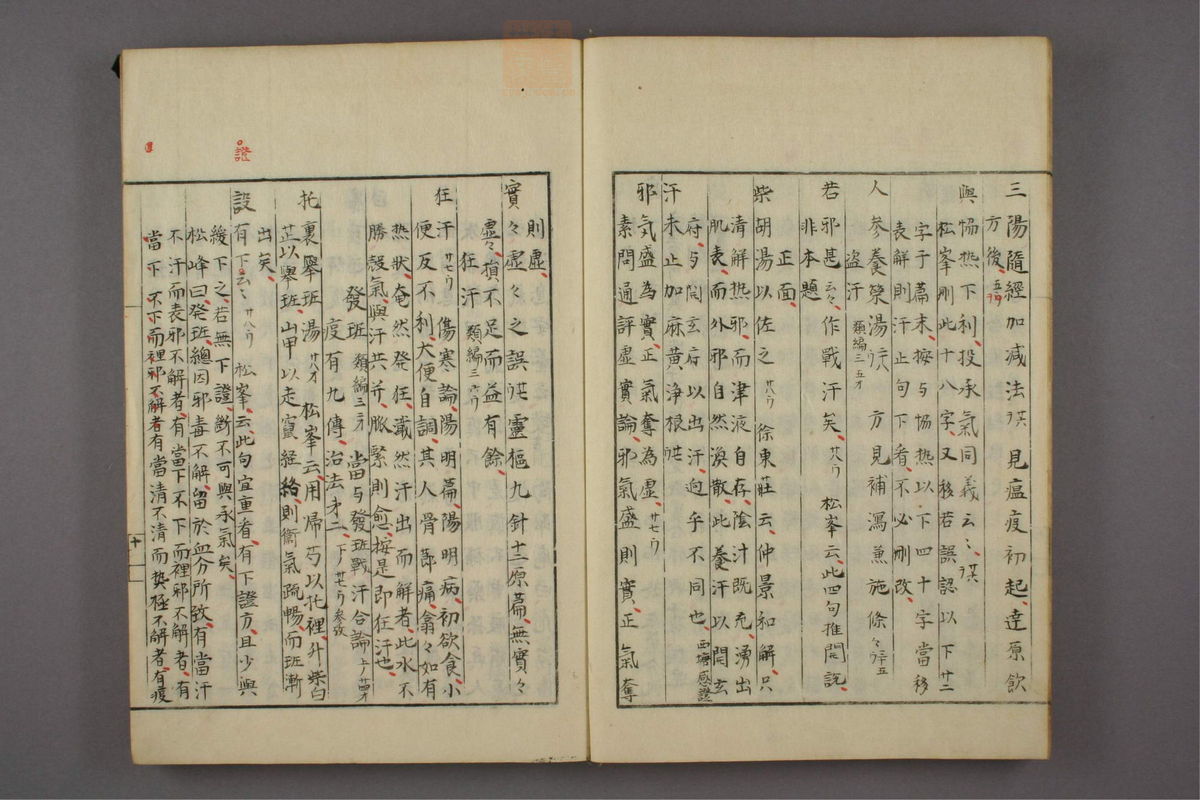 三陽隨經加減法 見瘟疫初起達原飲
方後
與協熱下利投承氣同義云々
松峯刪此十八字又移若誤認以下廿二
字于篇末按与協熱以下四十字當移
表解則汗止句下看不必刪改
人參養榮湯 方見補瀉兼施條
盜汗 類編三 五才
若邪甚云々作戰汗矣 廿六ウ 松峯云此四句推開說
非本題
正面
柴胡湯以佐之 廿六ウ 徐東莊云仲景和解只
清解熱邪而津液自存陰汁既充湧出
肌表而外邪自然渙散此養汗以開玄
府与開玄府以出汗迥乎不同也 西塘感證
汗未止加麻黃淨根
邪氣盛為實正氣奪為虛 廿七ウ
素問通評虛實論邪氣盛則實正氣奪
則虛
實々虛々之誤 靈樞九針十二原篇無實々
虛々損不足而益有餘
狂汗 類編三 六ウ
狂汗 廿七ウ 傷寒論陽明篇陽明病初欲食小
便反不利大便自調其人骨節痛翕々如有
熱狀奄然發狂濈然汗出而解者此水不
勝穀氣與汗共并脈緊則愈按是即狂汗也
發班 類編三 當与發班戰汗合論上
疫有九傳治法才二 下 參攷
托裏舉班湯 廿八才 松峯云用帰芍以托裡升柴白
芷以舉班山甲以走竄經絡則衛氣疏暢而班漸
出矣
設有下云々 廿八ウ 松峯云此句宜重看有下證方且少與
緩下之若無下證斷不可與承氣矣
松峰曰発班總因邪毒不解留於血分所致有當汗
不汗而表邪不解者有當下不下而裡邪不解者有
當下不下而裡邪不解者有當清不清而熱極不解者有疫
證
十